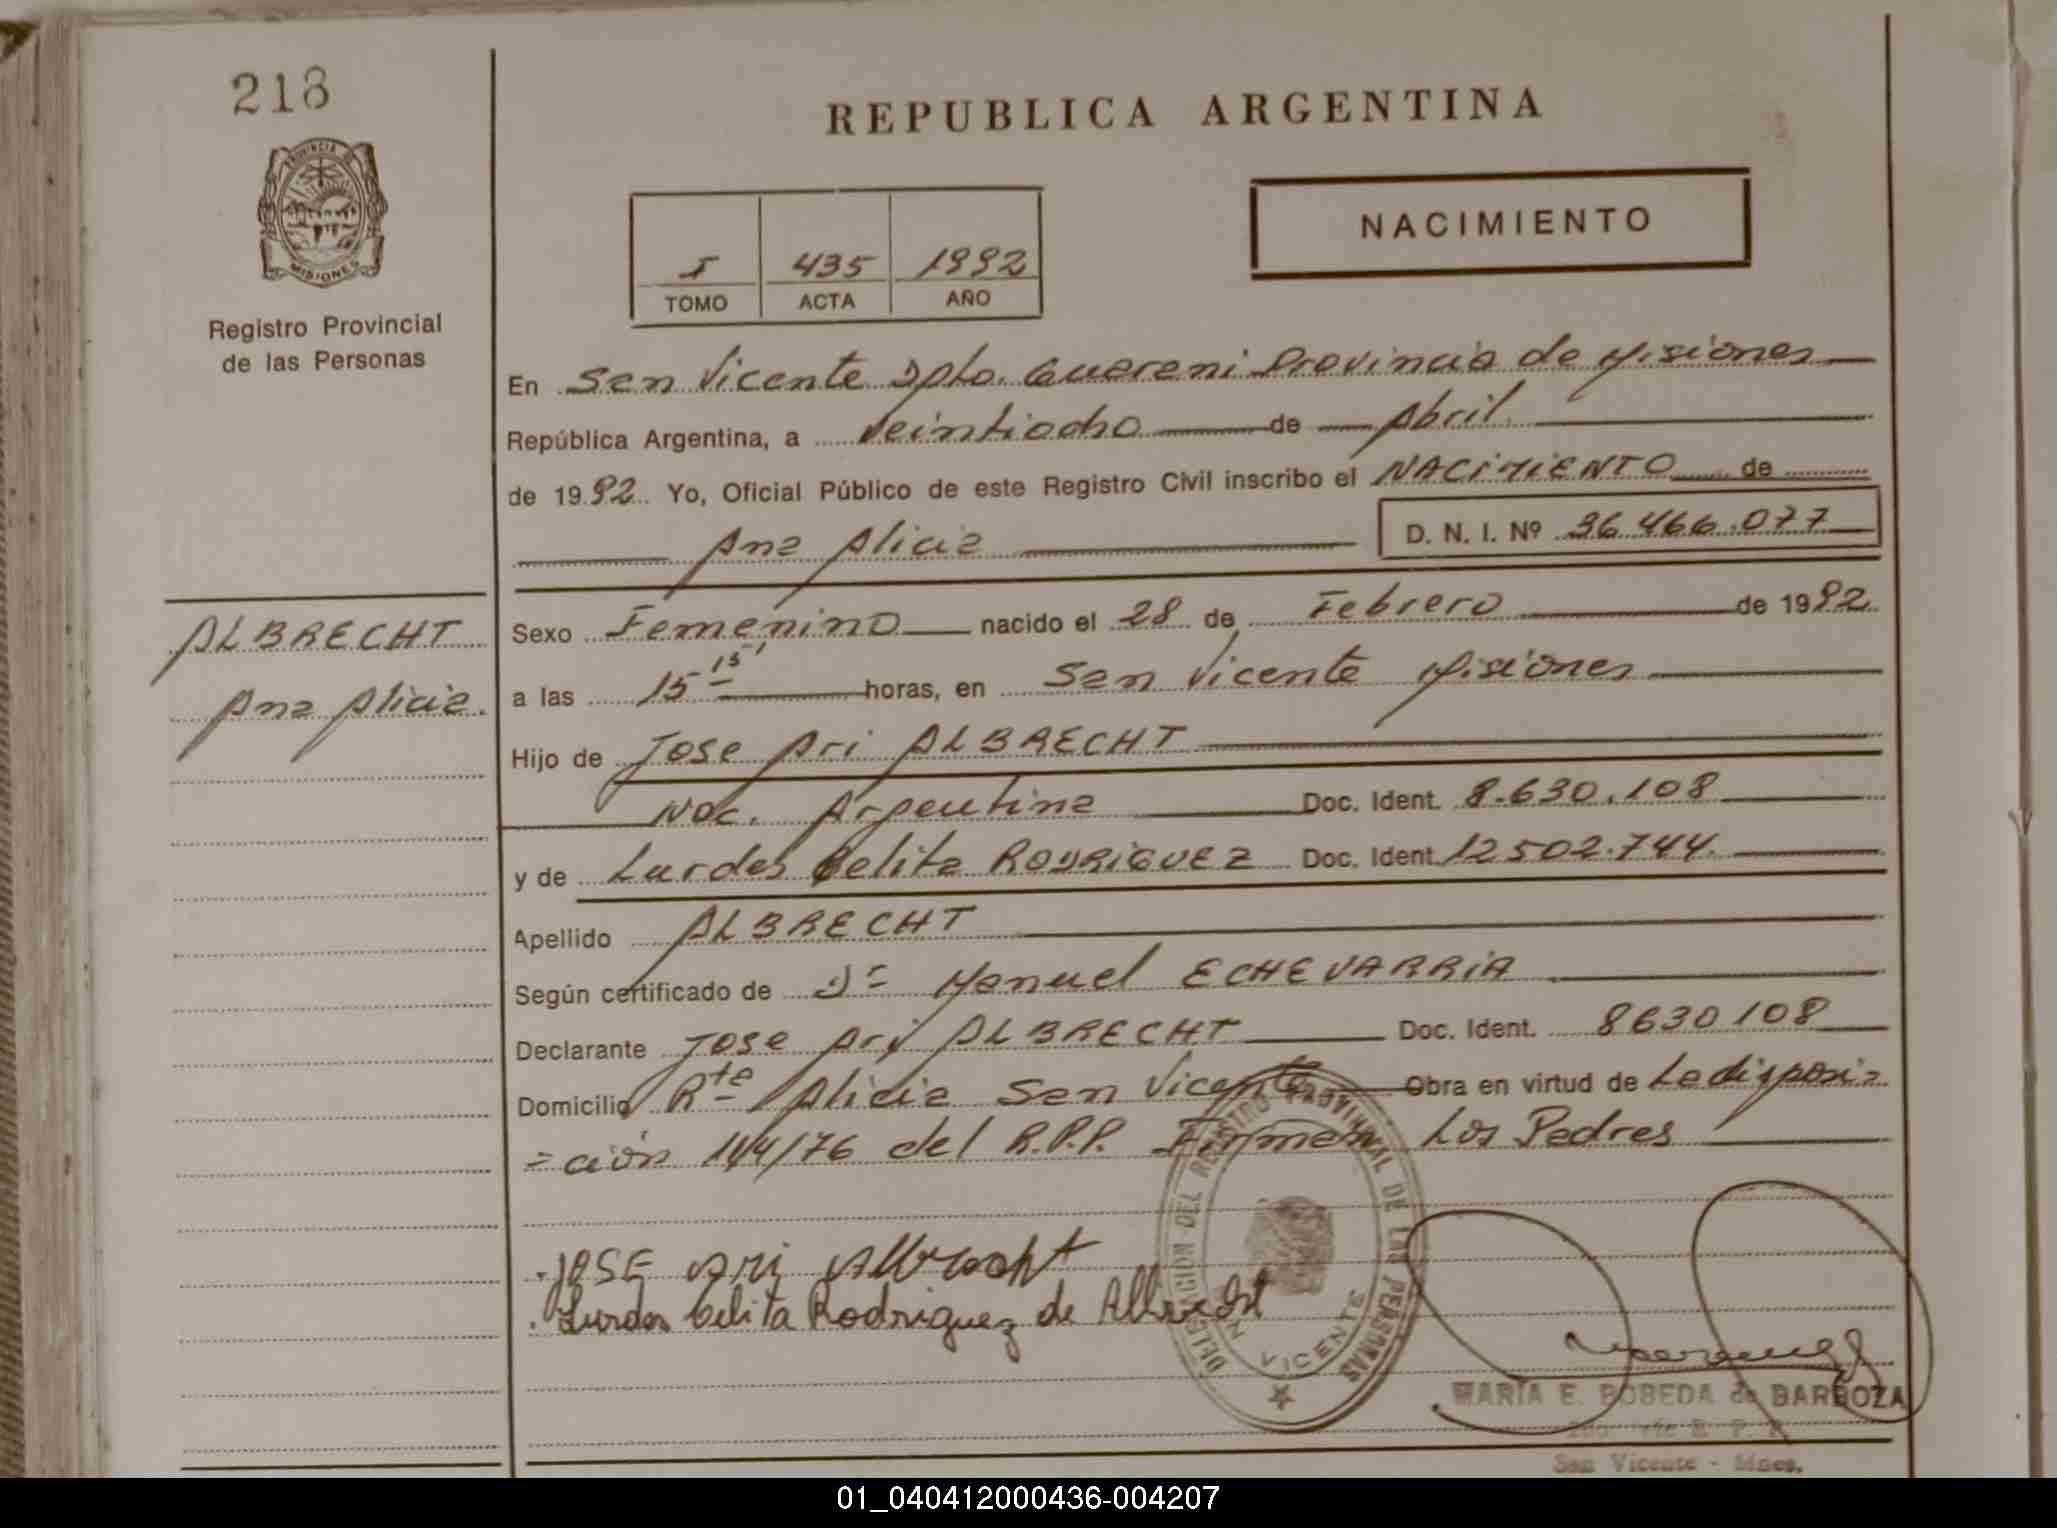 218
PROVINCIA DE
MISIONES
Registro Provincial
de las Personas
ALBRECHT
Ana Alicia.
REPUBLICA ARGENTINA
I 435 1992
TOMO ACTA AÑO
NACIMIENTO
En San Vicente Dpto. Guarani Provincia de Misiones
República Argentina, a Veintiocho de Abril
de 1992 Yo, Oficial Público de este Registro Civil inscribo el NACIMIENTO de
Ana Alicia D. N. I. Nº 36.466.077
Sexo Femenino nacido el 28 de Febrero de 1992
a las 15 15' horas, en San Vicente Misiones
Hijo de Jose Ari ALBRECHT
Nac. Argentina Doc. Ident. 8.630.108
y de Lurdes Celita RODRIGUEZ Doc. Ident. 12502.744
Apellido ALBRECHT
Según certificado de Dr Manuel ECHEVARRIA
Declarante Jose Ari ALBRECHT Doc. Ident. 8630108
Domicilio Rte Alicia San Vicente Obra en virtud de La disposi=
=ción 14/4/76 del R.P.P. Firman Los Padres
JOSE Ari Albrecht
Lurdes Celita Rodriguez de Albrecht
DELEGACION DEL REGISTRO PROVINCIAL DE LAS PERSONAS
VICENTE
MARIA E. BOBEDA de BARBOZA
R. P. P.
San Vicente - Mnes.
01_040412000436-004207